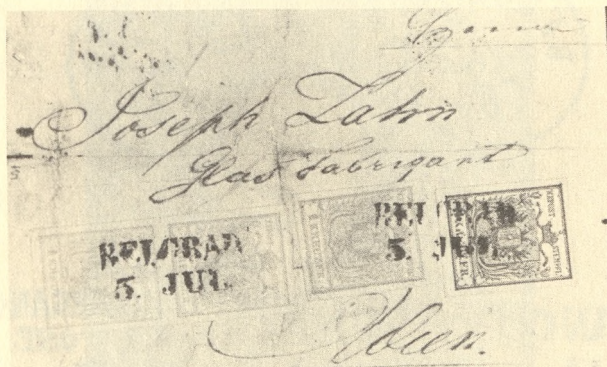 Joseph Zahn
Glas Fabrigant
BELGRAD
5. JUL.
BELGRAD
5. JUL.
Wien.